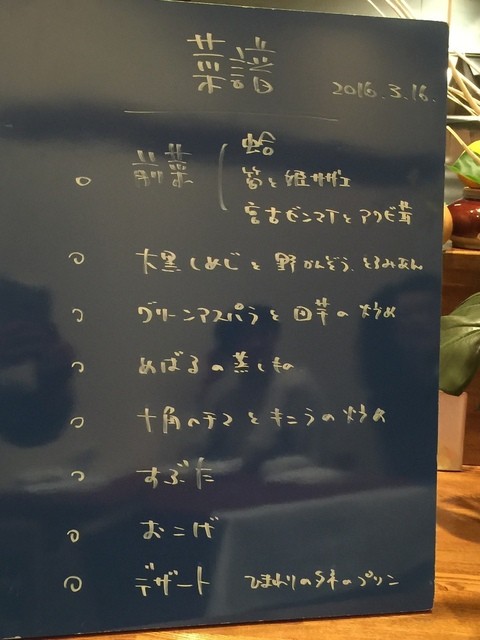 菜譜
2016.3.16.
前菜 蛤
筍と姫サザエ
宮古ビンマTとアワビ茸
○ 大黒しめじと野かんぞう、とろみあん
○ グリーンアスパラと田芋の炒め
○ めばるの蒸しもの
○ 十角ヘチマとキニラの炒め
○ すぶた
○ おこげ
○ デザート ひまわりのタネのプリン